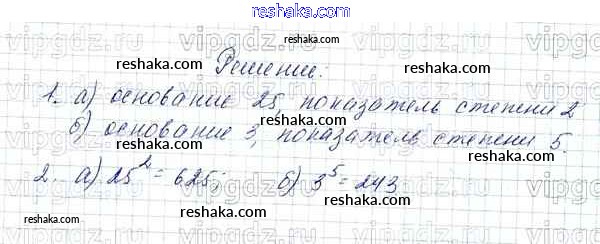 reshaka.com
Решение:
1. а) основание 25, показатель степени 2
б) основание 3, показатель степени 5.
2. а) 25² = 625; б) 3⁵ = 243
reshaka.com
reshaka.com
reshaka.com
reshaka.com
reshaka.com
reshaka.com
reshaka.com
reshaka.com
vipgdz.ru
vipgdz.ru
vipgdz.ru